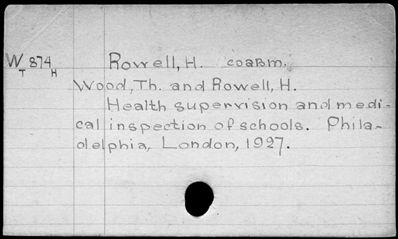 W 874 Rowell, H. coавт.
T H
Wood, Th. and Rowell, H.
Health supervision and medi-
cal inspection of schools. Phila-
delphia, London, 1927.